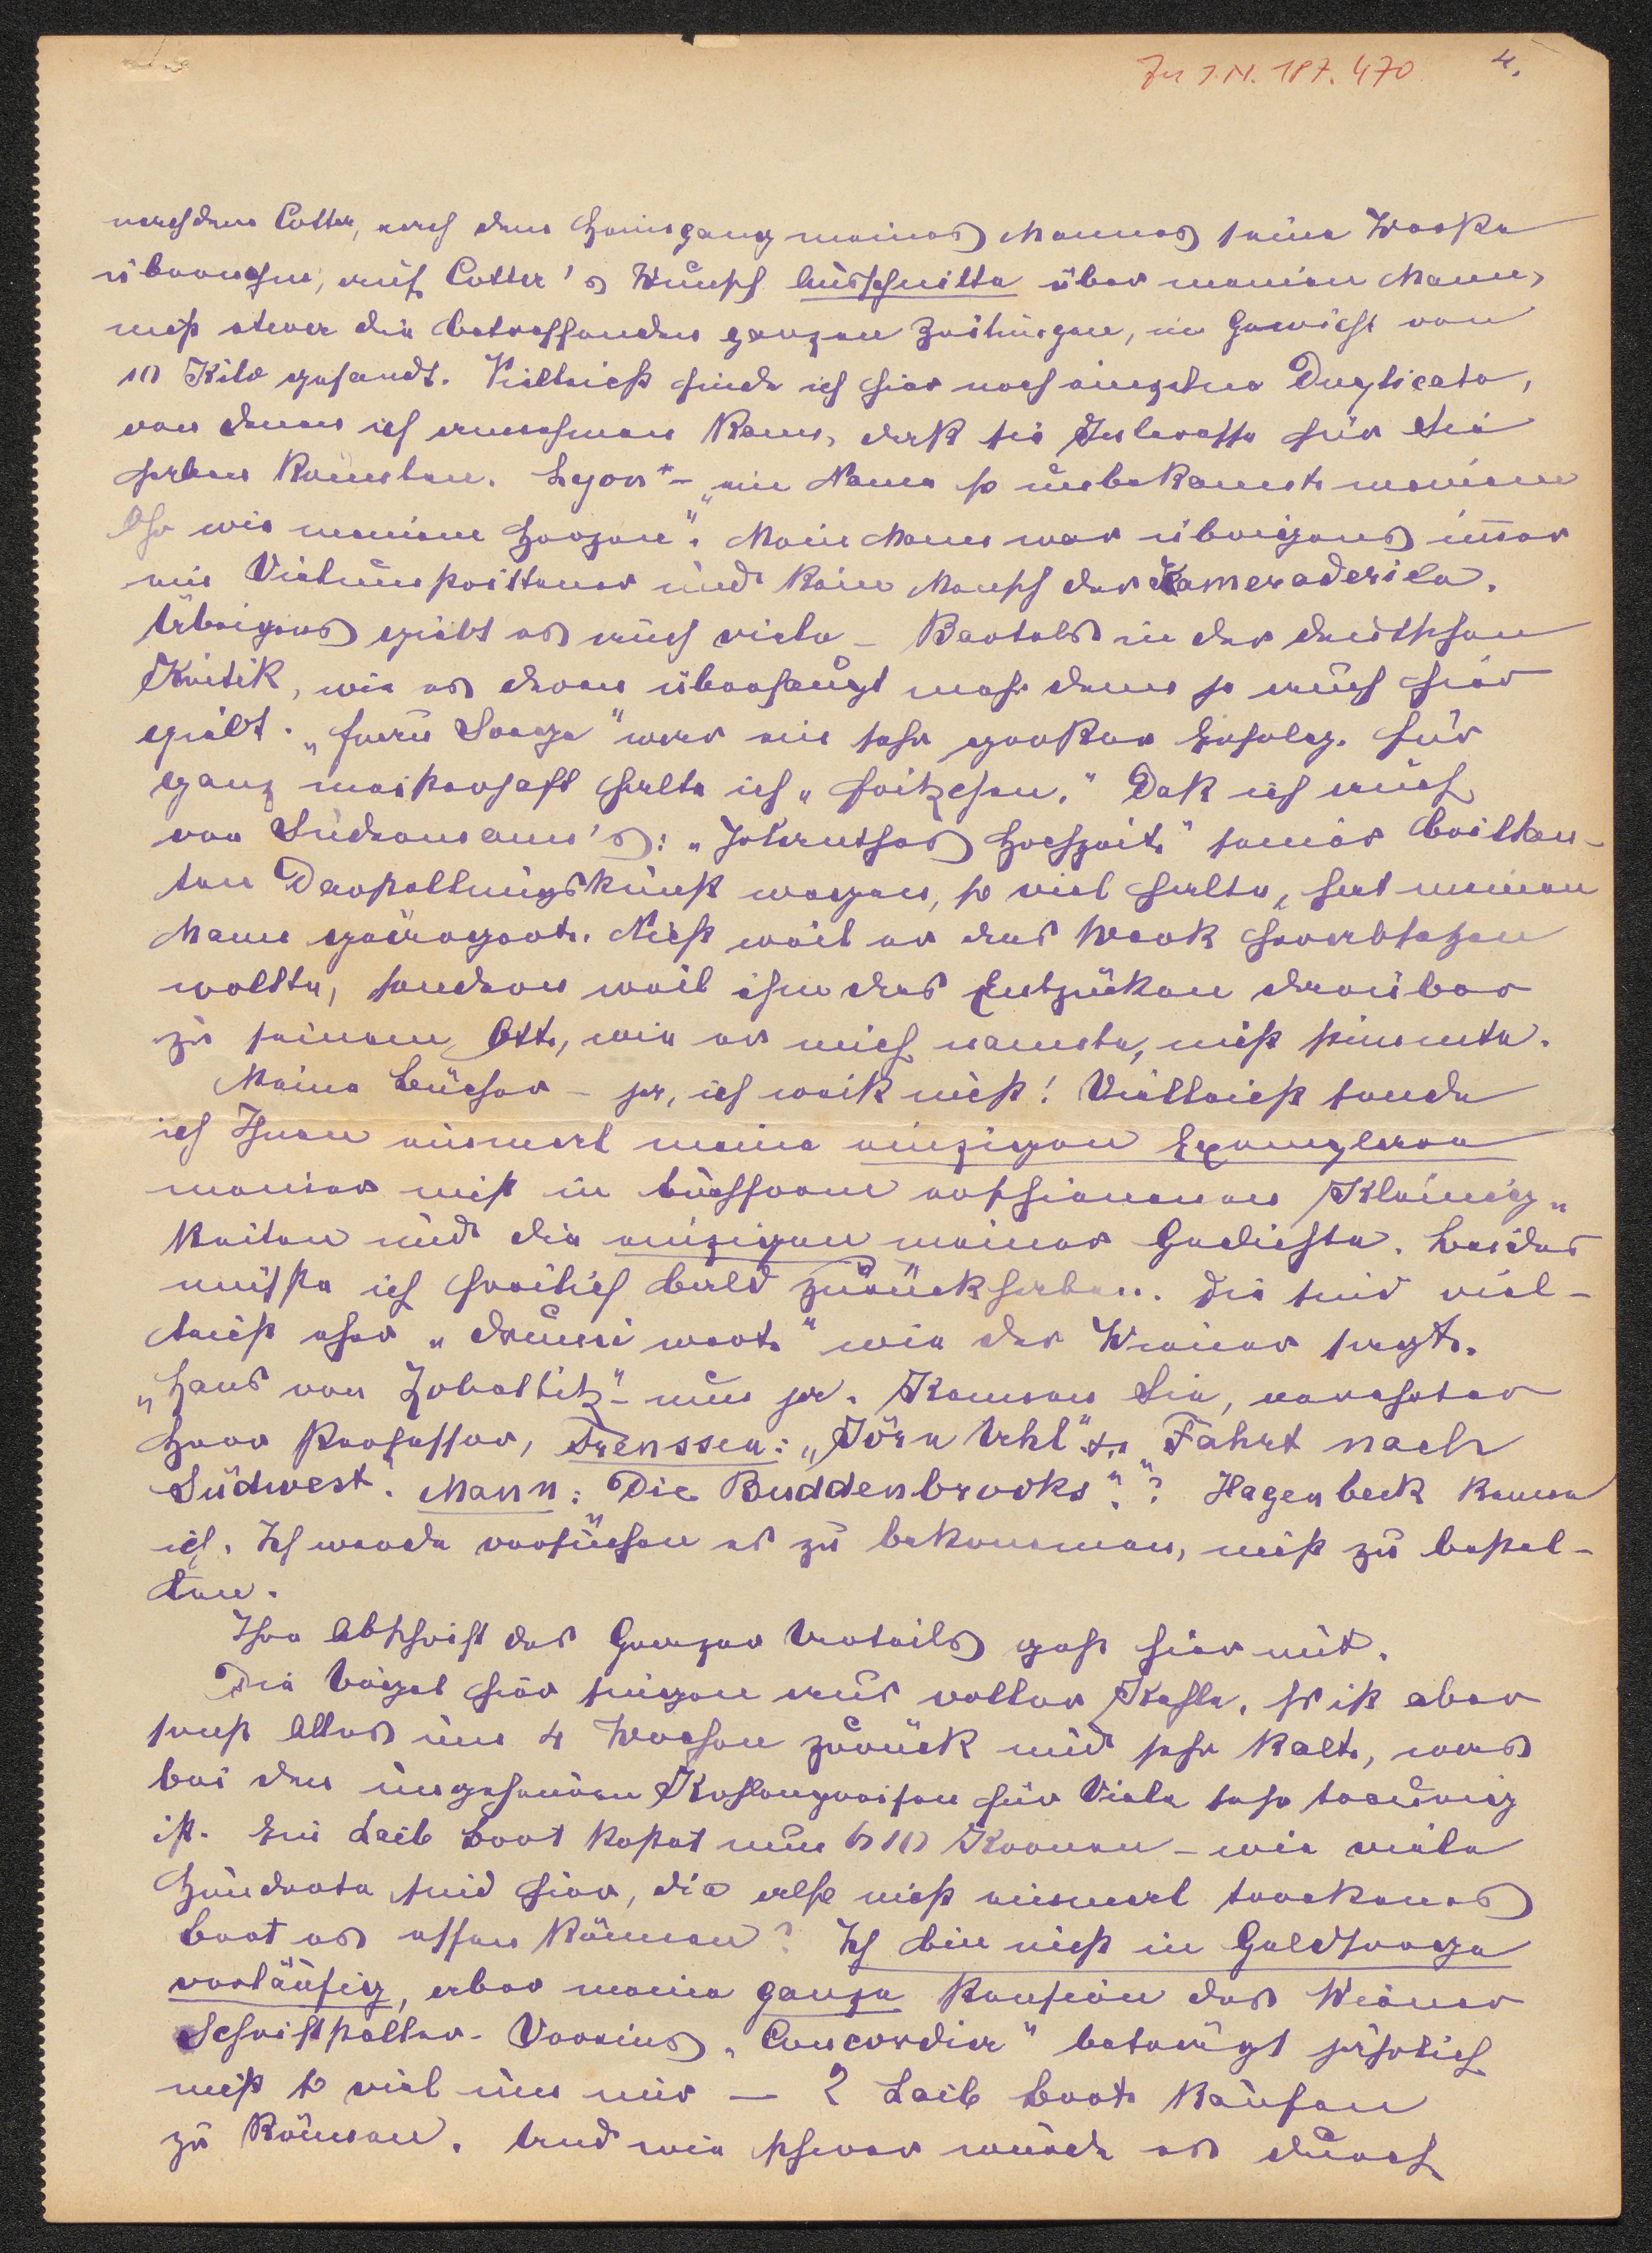 Zu I.N. 187.470 4.
nachdem Cotta, nach dem Heimgang meines Mannes seine Werke
übernahm, auf Cotta's Wunsch Ausschnitte über meinen Mann,
nicht etwa die betreffenden ganzen Zeitungen, im Gewicht von
10 Kilo gesandt. Vielleicht finde ich hier noch einzelne Duplicate,
von denen ich annehmen kann, daß sie Interesse für Sie
haben könnten. Lyon* – "ein Name so unbekannt meinem
Ohr wie meinem Herzen". Mein Mann war übrigens immer
ein Vielumstrittener und kein Mensch der Kameraderie.
Übrigens gibt es auch viele – Bartels in der deutschen
Kritik, wie es deren überhaupt mehr denn je auch hier
gibt. „Frau Sorge" war ein sehr großer Erfolg. Für
ganz meisterhaft halte ich „Fritzchen." Daß ich auch
von Sudermann's: „Jolanthes Hochzeit" seiner brillan-
ten Darstellungskunst wegen, so viel halte, hat meinen
Mann geärgert. Nicht weil er das Werk herabsetzen
wollte, sondern weil ihm das Entzücken darüber
zu seinem Ott, wie er mich nannte, nicht stimmte.
Meine Bücher – ja, ich weiß nicht! Vielleicht sende
ich Ihnen einmal meine einzigen Exemplare
meiner nicht in Buchform erschienenen Kleinig-
keiten und die einzigen meiner Gedichte. Beides
müßte ich freilich bald zurückhaben. Die sind viel-
leicht eher „drumi wert" wie der Wiener sagt.
„Hans von Zobeltitz" – nun ja. Kennen Sie, verehrter
Herr Professor, Frenssen: „Jörn Uhl" u. „Fahrt nach
Südwest". Mann: „Die Buddenbrooks"? Hagenbeck kenne
ich. Ich werde versuchen es zu bekommen, nicht zu bestel-
len.
Ihre Abschrift des Grazer Urteils geht hier mit.
Die Vögel hier singen aus voller Kehle. Es ist aber
sonst Alles um 4 Wochen zurück und sehr kalt, was
bei den ungeheuren Kohlenpreisen für Viele sehr traurig
ist. Ein Laib Brot kostet nun 610 Kronen – wie viele
Hunderte sind hier, die also nicht einmal trockenes
Brot essen können? Ich bin nicht in Geldsorge
vorläufig, aber meine ganze Pension des Wiener
Schriftsteller-Vereins „Concordia" beträgt jährlich
nicht so viel um mir – 2 Laib Brot kaufen
zu können. Und wie schwer würde es durch